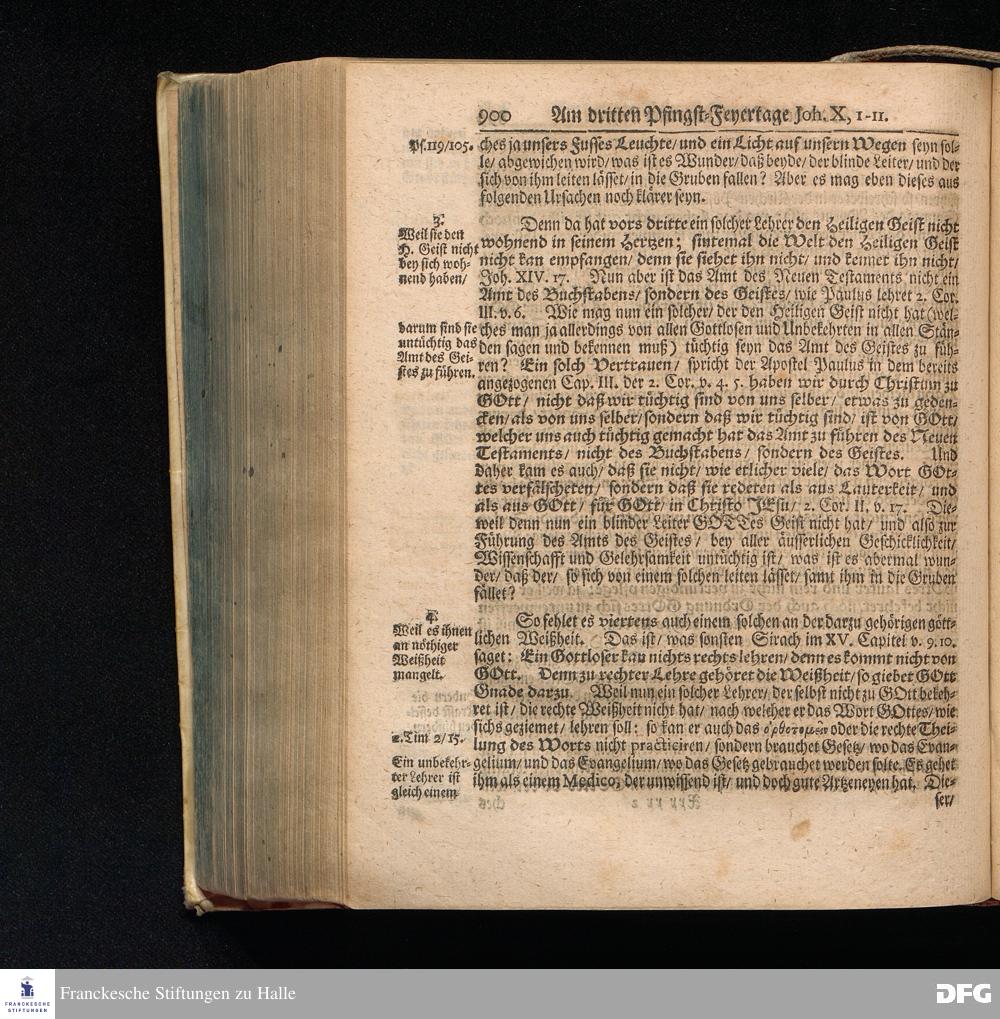 900 Am dritten Pfingst-Feyertage Joh. X, 1-11.
Ps. 119/105.
ches ja unsers Fusses Leuchte/ und ein Licht auf unsern Wegen seyn sol-
le/ abgewichen wird/ was ist es Wunder/ daß beyde/ der blinde Leiter/ und der
sich von ihm leiten lässet/ in die Gruben fallen? Aber es mag eben dieses aus
folgenden Ursachen noch klärer seyn.
3.
Weil sie den
H. Geist nicht
bey sich woh-
nend haben/
Denn da hat vors dritte ein solcher Lehrer den Heiligen Geist nicht
wohnend in seinem Hertzen; sintemal die Welt den Heiligen Geist
nicht kan empfangen/ denn sie siehet ihn nicht/ und kennet ihn nicht/
Joh. XIV. 17. Nun aber ist das Amt des Neuen Testaments nicht ein
Amt des Buchstabens/ sondern des Geistes/ wie Paulus lehret 2. Cor.
III. v. 6. Wie mag nun ein solcher/ der den Heiligen Geist nicht hat (wel-
darum sind sie
untüchtig das
Amt des Gei-
stes zu führen.
ches man ja allerdings von allen Gottlosen und Unbekehrten in allen Stän-
den sagen und bekennen muß) tüchtig seyn das Amt des Geistes zu füh-
ren? Ein solch Vertrauen/ spricht der Apostel Paulus in dem bereits
angezogenen Cap. III. der 2. Cor. v. 4. 5. haben wir durch Christum zu
GOtt/ nicht daß wir tüchtig sind von uns selber/ etwas zu geden-
cken/ als von uns selber/ sondern daß wir tüchtig sind/ ist von GOtt/
welcher uns auch tüchtig gemacht hat das Amt zu führen des Neuen
Testaments/ nicht des Buchstabens/ sondern des Geistes. Und
daher kam es auch/ daß sie nicht/ wie etlicher viele/ das Wort GOt-
tes verfälscheten/ sondern daß sie redeten als aus Lauterkeit/ und
als aus GOtt/ für GOtt/ in Christo JEsu/ 2. Cor. II. v. 17. Die-
weil denn nun ein blinder Leiter GOTTes Geist nicht hat/ und also zur
Führung des Amts des Geistes/ bey aller äusserlichen Geschicklichkeit/
Wissenschafft und Gelehrsamkeit untüchtig ist/ was ist es abermal wun-
der/ daß der/ so sich von einem solchen leiten lässet/ samt ihm in die Gruben
fället?
4.
Weil es ihnen
an nöthiger
Weißheit
mangelt.
So fehlet es viertens auch einem solchen an der darzu gehörigen gött-
lichen Weißheit. Das ist/ was sonsten Sirach im XV. Capitel v. 9. 10.
saget: Ein Gottloser kan nichts rechts lehren/ denn es kommt nicht von
GOtt. Denn zu rechter Lehre gehöret die Weißheit/ so giebet GOtt
Gnade darzu. Weil nun ein solcher Lehrer/ der selbst nicht zu GOtt bekeh-
ret ist/ die rechte Weißheit nicht hat/ nach welcher er das Wort GOttes/ wie
sichs geziemet/ lehren soll: so kan er auch das ὀρθοτομεῖν oder die rechte Thei-
2. Tim 2/15.
lung des Worts nicht practiciren/ sondern brauchet Gesetz/ wo das Evan-
Ein unbekehr-
ter Lehrer ist
gleich einem
gelium/ und das Evangelium/ wo das Gesetz gebrauchet werden solte. Es gehet
ihm als einem Medico, der unwissend ist/ und doch gute Artzeneyen hat. Die-
ser/
FRANCKESCHE
STIFTUNGEN
Franckesche Stiftungen zu Halle
DFG